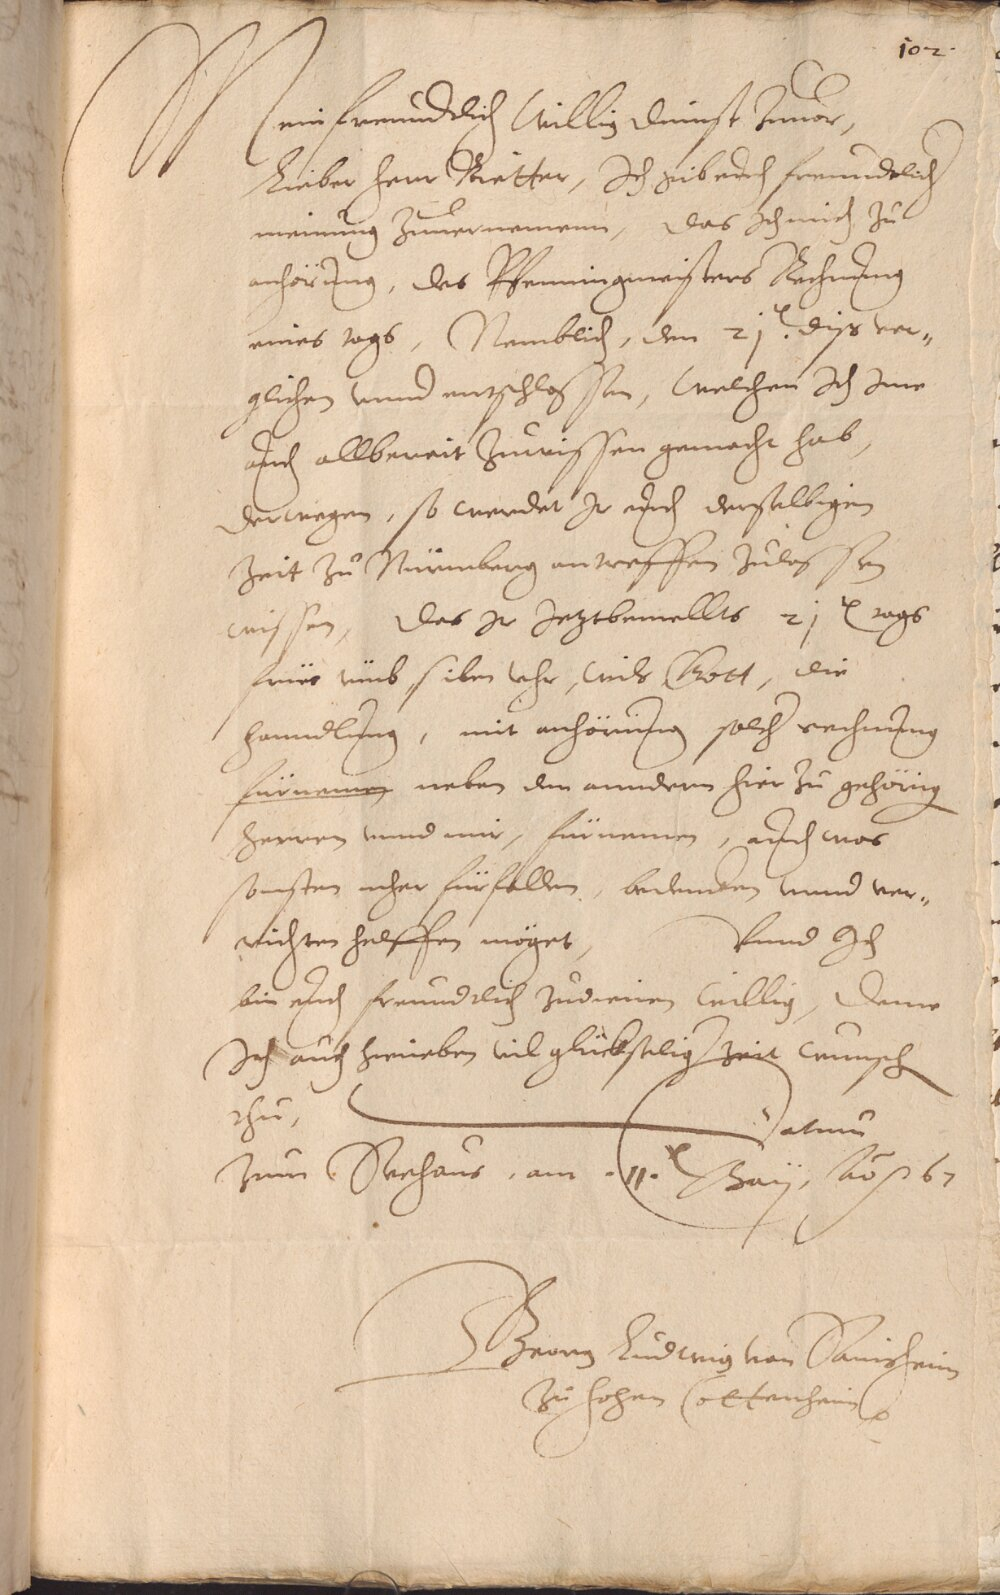 102.
Mein freundtlich willig dinnst zuuor,
Lieber herr Rietter, Ich gib euch freundtlich
meinung zuuernemenn, das Ich mich zu
anhörung, des Pfenningmeisters Rechnung
eines tags, Nemblich, den 21t. diss ver„
glichen vnnd entschlossen, welchen Ich Ime
auch allbereit zuwissen gemacht hab,
derwegen, so werdet Ir euch derselbigen
Zeit zu Nürmberg antreffen zulassen
wissen, das Ir Jetztbemellts 21t tags
früe vmb siben vhr, wils Gott, die
hanndlung, mit anhörung solcher rechnung
fürnemen neben den anndern hier zu gehörig
herren vnnd mir, fürnemen, auch was
sonsten mher fürfallen, bedencken vnnd ver„
richten helffen möget, Vnnd Ich
bin euch freundtlich zudienen willig, denne
Ich auch hieneben vil glückseliger Zeit wunsch
thu, Datum
zum Seehaus, am .11.t Maij, Ao 67
Georg Ludwig von Sainsheim
zu hohen Cottenheim